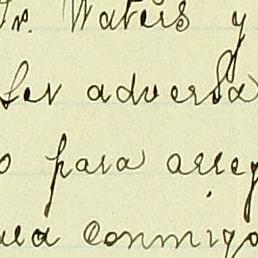 Sr. Waters y
ser adversa
o para arreg
conmigo